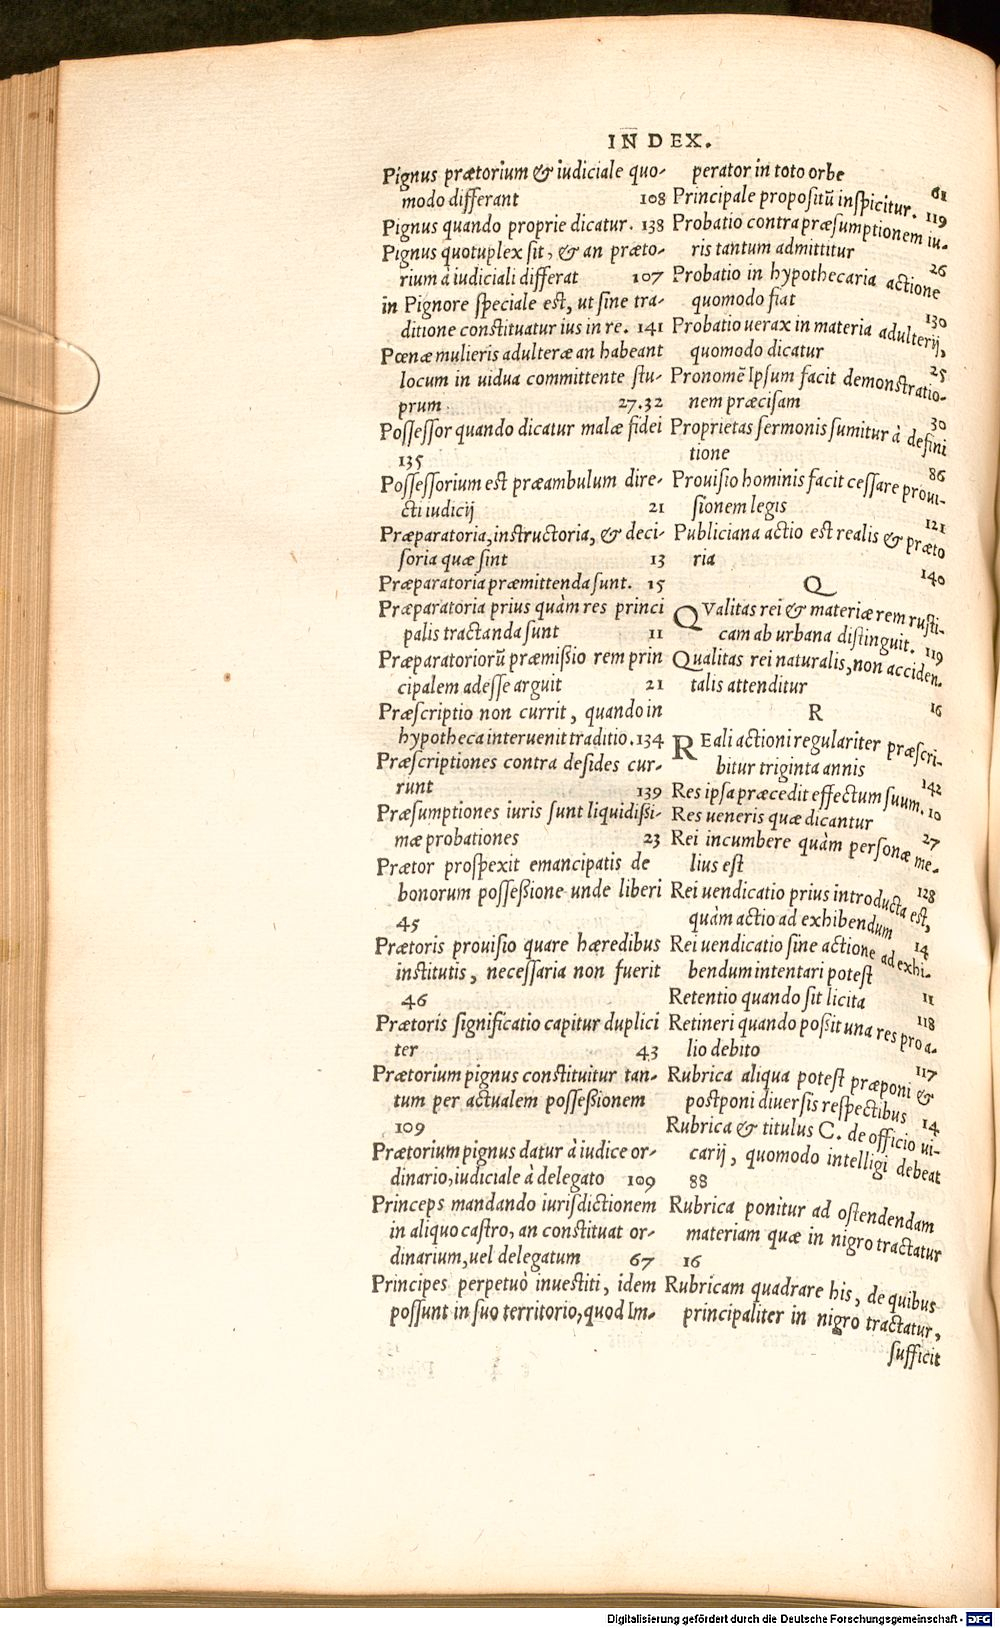 INDEX.
Pignus prætorium & iudiciale quo-
modo differant 108
Pignus quando proprie dicatur. 138
Pignus quotuplex sit, & an præto-
rium à iudiciali differat 107
in Pignore speciale est, ut sine tra-
ditione constituatur ius in re. 141
Pœnæ mulieris adulteræ an habeant
locum in uidua committente stu-
prum 27.32
Possessor quando dicatur malæ fidei
135
Possessorium est præambulum dire-
cti iudicij 21
Præparatoria, instructoria, & deci-
soria quæ sint 13
Præparatoria præmittenda sunt. 15
Præparatoria prius quàm res princi
palis tractanda sunt 11
Præparatoriorũ præmissio rem prin
cipalem adesse arguit 21
Præscriptio non currit, quando in
hypotheca interuenit traditio. 134
Præscriptiones contra desides cur-
runt 139
Præsumptiones iuris sunt liquidißi-
mæ probationes 23
Prætor prospexit emancipatis de
bonorum posseßione unde liberi
45
Prætoris prouisio quare hæredibus
institutis, necessaria non fuerit
46
Prætoris significatio capitur duplici
ter 43
Prætorium pignus constituitur tan-
tum per actualem posseßionem
109
Prætorium pignus datur à iudice or-
dinario, iudiciale à delegato 109
Princeps mandando iurisdictionem
in aliquo castro, an constituat or-
dinarium, uel delegatum 67
Principes perpetuò inuestiti, idem
possunt in suo territorio, quod Im-
perator in toto orbe 61
Principale propositũ inspicitur. 119
Probatio contra præsumptionem iu-
ris tantum admittitur 26
Probatio in hypothecaria actione
quomodo fiat 130
Probatio uerax in materia adulterij,
quomodo dicatur 25
Pronomẽ Ipsum facit demonstratio-
nem præcisam 30
Proprietas sermonis sumitur à defini
tione 86
Prouisio hominis facit cessare proui-
sionem legis 121
Publiciana actio est realis & præto
ria 140
Q
QValitas rei & materiæ rem rusti-
cam ab urbana distinguit. 119
Qualitas rei naturalis, non acciden-
talis attenditur 16
R
REali actioni regulariter præscri-
bitur triginta annis 142
Res ipsa præcedit effectum suum. 10
Res ueneris quæ dicantur 27
Rei incumbere quàm personæ me-
lius est 128
Rei uendicatio prius introducta est,
quàm actio ad exhibendum 14
Rei uendicatio sine actione ad exhi-
bendum intentari potest 11
Retentio quando sit licita 118
Retineri quando poßit una res pro a-
lio debito 117
Rubrica aliqua potest præponi &
postponi diuersis respectibus 14
Rubrica & titulus C. de officio ui-
carij, quomodo intelligi debeat
88
Rubrica ponitur ad ostendendam
materiam quæ in nigro tractatur
16
Rubricam quadrare his, de quibus
principaliter in nigro tractatur,
sufficit
Digitalisierung gefördert durch die Deutsche Forschungsgemeinschaft - DFG